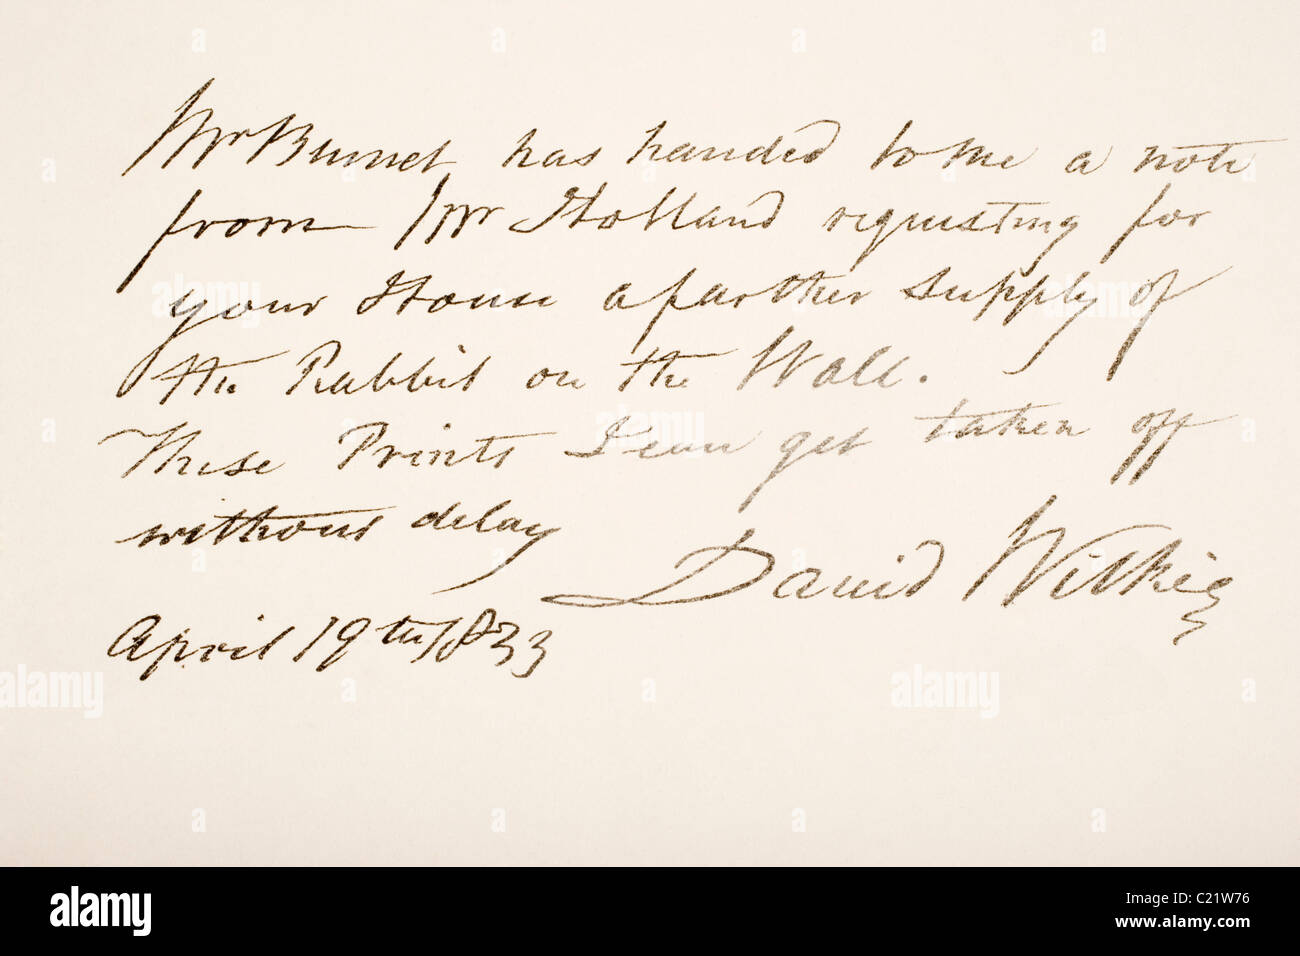 Mr Burnet has handed to me a note
from Mr Holland requesting for
your House a farther supply of
the Rabbit on the Wall.
These Prints I can get taken off
without delay
David Wilkie
April 19th 1833
alamy
alamy
alamy
alamy
Image ID: C21W76
www.alamy.com